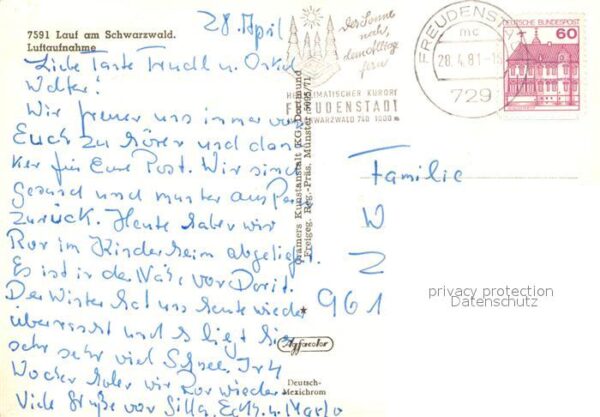 7591 Lauf am Schwarzwald.
Luftaufnahme
28. April
Liebe Tante Trudl u. Onkel
Walter!
Wir freuen uns immer von
Euch zu hören und dan
ken für Eure Post. Wir sind
gesund und munter aus
zurück. Heute haben wir
im Kinderheim abgeliefert.
Es ist in der Nähe von
Der Winter hat uns heute wieder
überrascht und es liegt hier
sehr sehr viel Schnee. In 4
Wochen holen wir wieder
Viele Grüße von
Cramers Kunstanstalt KG, Dortmund
Freigeg. Reg.-Präs. Münster
Agfacolor
Deutsch-
Mexichrom
Der Sonne
nah,
dem Alltag
fern
HEILKLIMATISCHER KURORT
FREUDENSTADT
SCHWARZWALD 740 1000 m
FREUDENSTADT
mc
28.4.81-15
729
DEUTSCHE BUNDESPOST
60
Familie
W
Z
961
privacy protection
Datenschutz